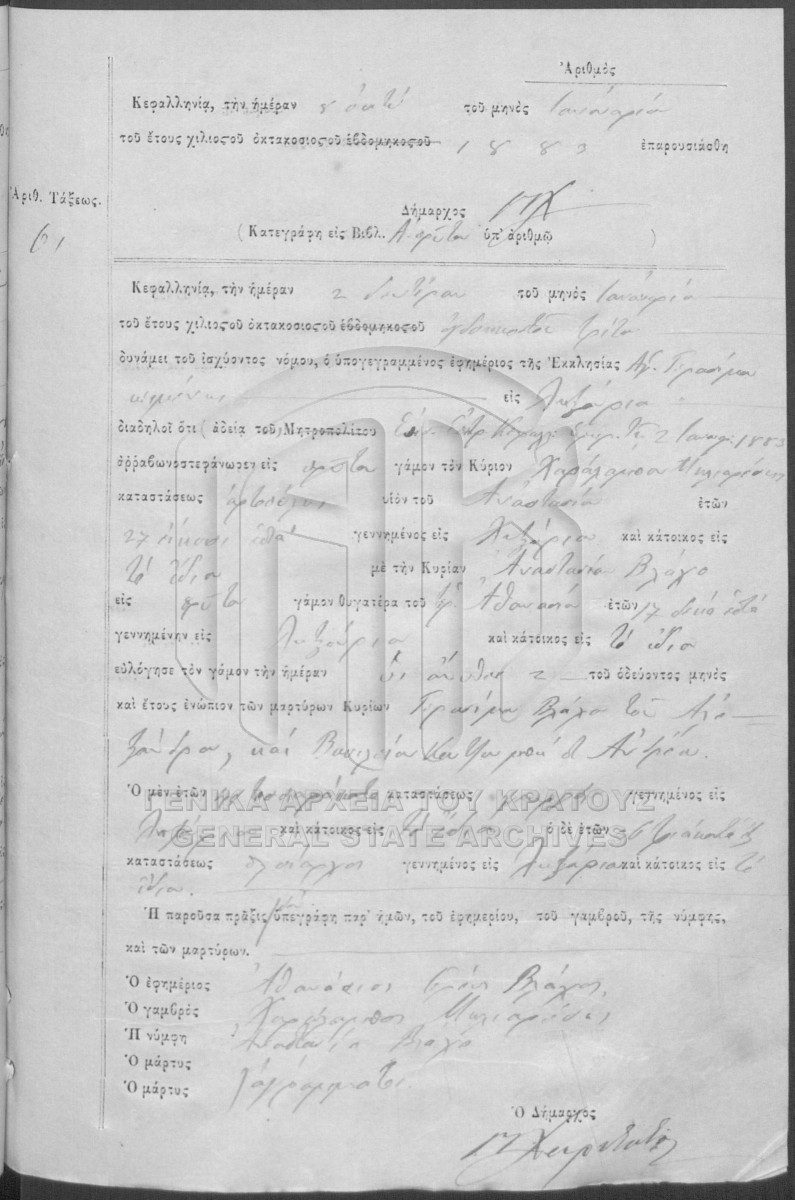 Ἀριθμὸς
Κεφαλληνία, τὴν ἡμέραν 8 ὀκτὼ τοῦ μηνὸς Ἰανουαρίου
τοῦ ἔτους χιλιοςοῦ ὀκτακοσιοςοῦ ἑβδομηκοςοῦ 1883 ἐπαρουσιάσθη
Ἀριθ. Τάξεως.
Δήμαρχος
6
( Κατεγράφη εἰς Βιβλ. Α πρῶτον ὑπ' ἀριθμῷ )
Κεφαλληνία, τὴν ἡμέραν 2 δευτέραν τοῦ μηνὸς Ἰανουαρίου
τοῦ ἔτους χιλιοςοῦ ὀκτακοσιοςοῦ ἑβδομηκοςοῦ ὀγδοηκοστοῦ τρίτου
δυνάμει τοῦ ἰσχύοντος νόμου, ὁ ὑπογεγραμμένος ἐφημέριος τῆς Ἐκκλησίας Ἁγ. Γερασίμου
κειμένης εἰς Ληξούριον
διαδηλοῖ ὅτι ( ἀδείᾳ τοῦ Μητροπολίτου 2 Ιανουαρ. 1883
ἀῤῥαβωνοστεφάνωσεν εἰς πρῶτον γάμον τὸν Κύριον Χαράλαμπον
καταστάσεως υἱὸν τοῦ Ἀναστασίου ἐτῶν
27 εἴκοσι ἑπτὰ γεννημένος εἰς Ληξούριον καὶ κάτοικος εἰς
τὸ ἴδιον μὲ τὴν Κυρίαν Ἀναστασίαν Βλάχο
εἰς πρῶτον γάμον θυγατέρα τοῦ Ἀθανασίου ἐτῶν 17 δέκα ἑπτὰ
γεννημένην εἰς Ληξούριον καὶ κάτοικος εἰς τὸ ἴδιον
εὐλόγησε τὸν γάμον τὴν ἡμέραν 2 τοῦ ὁδεύοντος μηνὸς
καὶ ἔτους ἐνώπιον τῶν μαρτύρων Κυρίων Γερασίμου Βλάχου τοῦ Ἀλε-
ξάνδρου, καὶ Βασιλείου Ἀνδρέα.
Ὁ μὲν ἐτῶν καταστάσεως γεννημένος εἰς
Ληξούριον καὶ κάτοικος εἰς τὸ ἴδιον ὁ δὲ ἐτῶν
καταστάσεως γεννημένος εἰς Ληξούριον καὶ κάτοικος εἰς τὸ
ἴδιον.
Ἡ παροῦσα πρᾶξις ὑπεγράφη παρ' ἡμῶν, τοῦ ἐφημερίου, τοῦ γαμβροῦ, τῆς νύμφης,
καὶ τῶν μαρτύρων.
Ὁ ἐφημέριος Ἀθανάσιος Βλάχος
Ὁ γαμβρὸς Χαράλαμπος
Ἡ νύμφη Ἀναστασία Βλάχο
Ὁ μάρτυς
Ὁ μάρτυς ἀγράμματοι.
Ὁ Δήμαρχος
ΓΕΝΙΚΑ ΑΡΧΕΙΑ ΤΟΥ ΚΡΑΤΟΥΣ
GENERAL STATE ARCHIVES